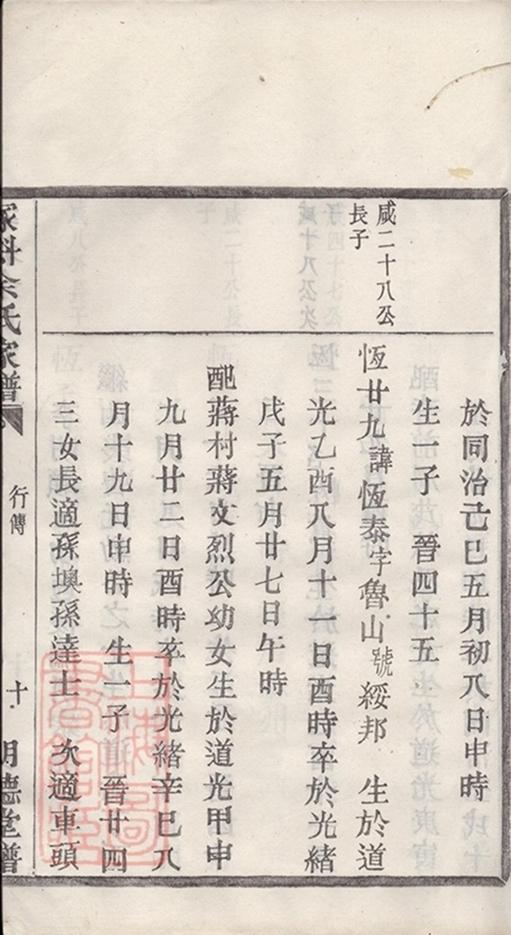 於同治己巳五月初八日申時
生一子 晉四十五
咸二十八公
長子
恆廿九諱恆泰字魯山號綏邦 生於道
光乙酉八月十一日酉時卒於光緒
戊子五月廿七日午時
配蔣村蔣文烈公幼女生於道光甲申
九月廿二日酉時卒於光緒辛巳八
月十九日申時 生一子 晉廿四
三女長適孫墺孫達士 次適車頭
余氏家譜
行傳
十
明德堂譜